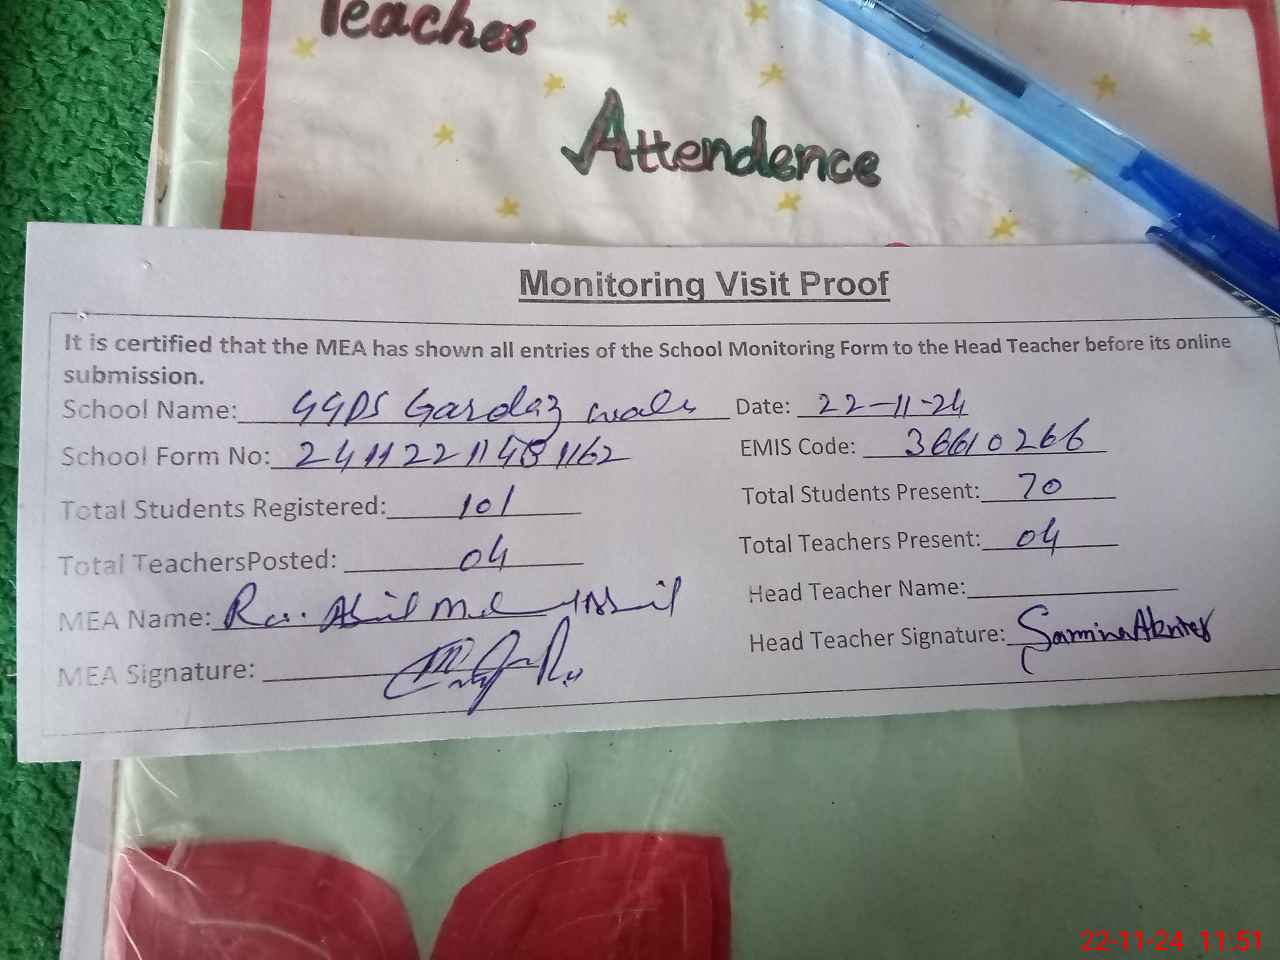 Teacher
Attendence
Monitoring Visit Proof
It is certified that the MEA has shown all entries of the School Monitoring Form to the Head Teacher before its online
submission.
School Name: GGPS Gardaz wala Date: 22-11-24
School Form No: EMIS Code: 36610266
Total Students Registered: 101 Total Students Present: 70
Total TeachersPosted: 04 Total Teachers Present: 04
MEA Name: Head Teacher Name:
MEA Signature: Head Teacher Signature: Samina Akhter
22-11-24 11:51